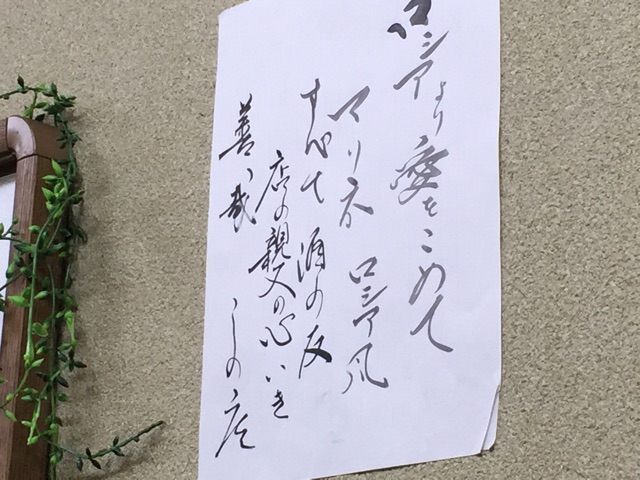 ロシアより愛をこめて
マリネ ロシア風
すべて 酒の友
店の親父の心いき
善い哉 この店